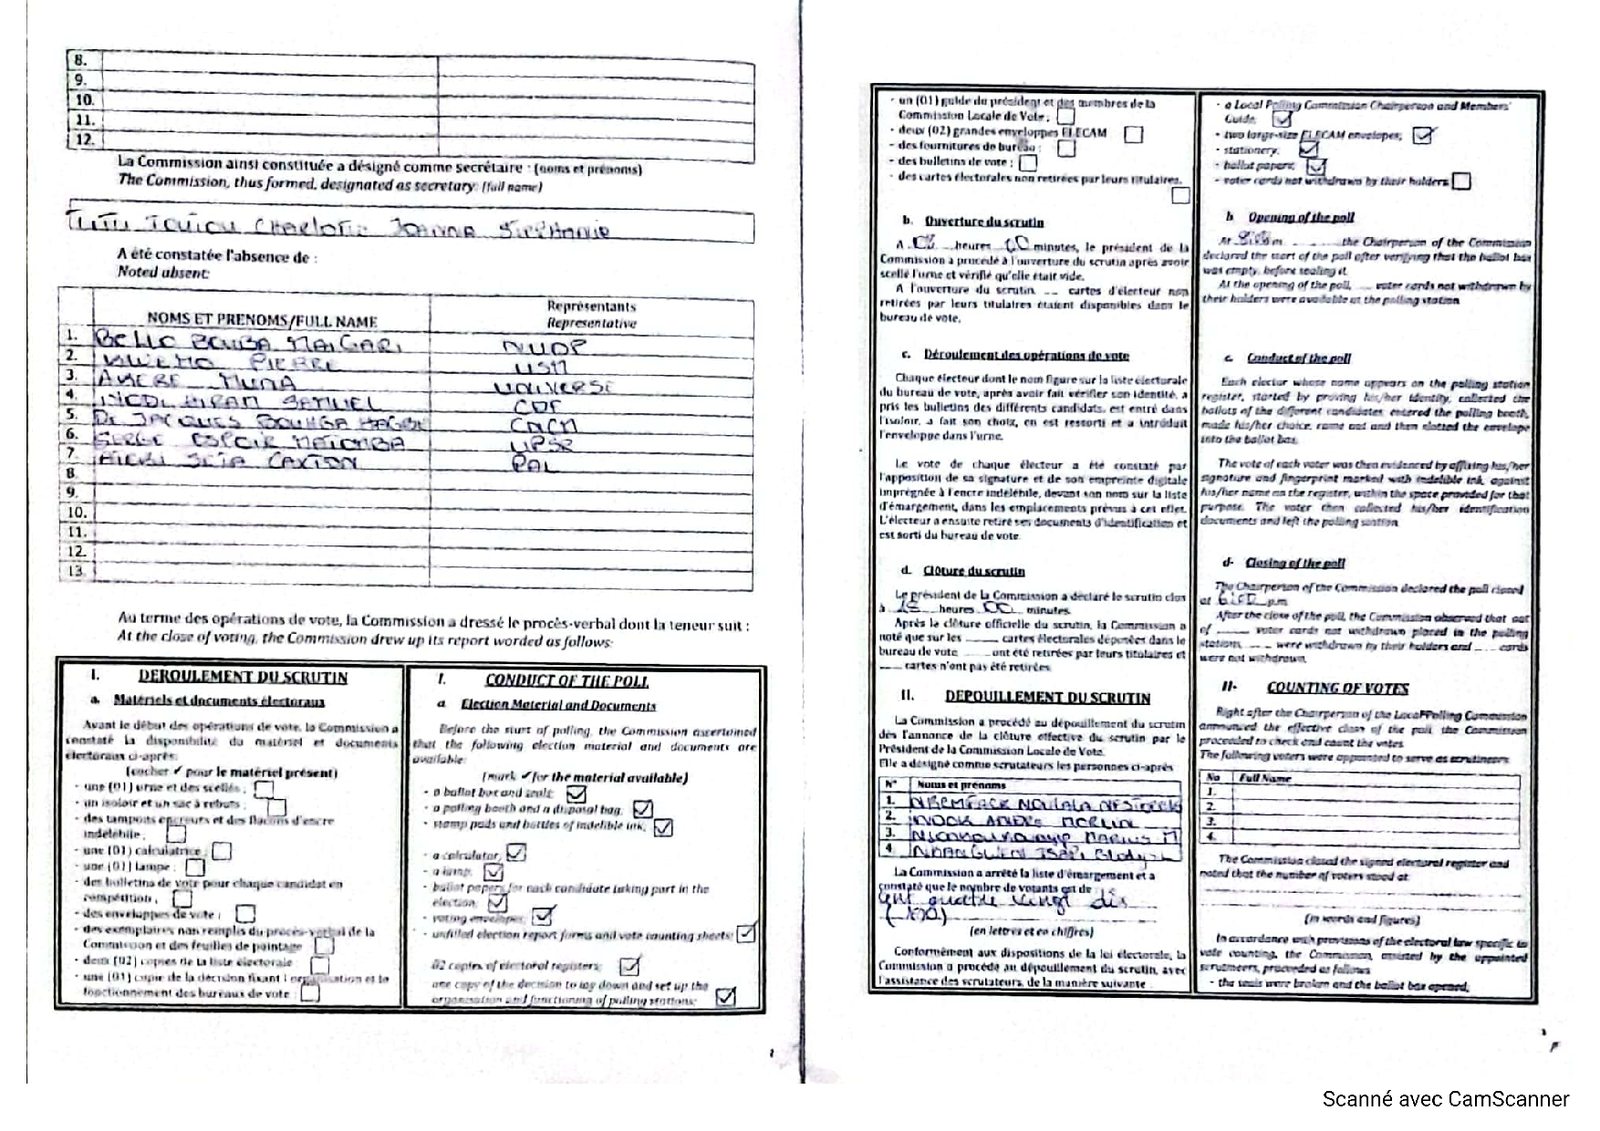 8.
9.
10.
11.
12.
La Commission ainsi constituée a désigné comme secrétaire : (noms et prénoms)
The Commission, thus formed, designated as secretary: (full name)
CHARLOTTE JOANNA STEPHANIE
A été constatée l'absence de :
Noted absent:
NOMS ET PRENOMS/FULL NAME
Représentants
Representative
1. BELLO BOUBA MAIGARI NUDP
2. PIERRE USM
3. AKERE MUNA UNIVERSE
4. HIRAM SAMUEL CDF
5. Dr JACQUES BOUNGA HAGBE CNCM
6. SERGE ESPOIR MATOMBA UPSR
7. SETA CAXTON PAL
8.
9.
10.
11.
12.
13.
Au terme des opérations de vote, la Commission a dressé le procès-verbal dont la teneur suit :
At the close of voting, the Commission drew up its report worded as follows:
I. DEROULEMENT DU SCRUTIN
a. Matériels et documents électoraux
Avant le début des opérations de vote, la Commission a
constaté la disponibilité du matériel et documents
électoraux ci-après:
(cocher ✔ pour le matériel présent)
- une (01) urne et des scellés ;
- un isoloir et un sac à rebuts ;
- des tampons encreurs et des flacons d'encre
indélébile ;
- une (01) calculatrice ;
- une (01) lampe ;
- des bulletins de vote pour chaque candidat en
compétition ;
- des enveloppes de vote ;
- des exemplaires non remplis du procès-verbal de la
Commission et des feuilles de pointage
- deux (02) copies de la liste électorale
- une (01) copie de la décision fixant l'organisation et le
fonctionnement des bureaux de vote
I. CONDUCT OF THE POLL
a Election Material and Documents
Before the start of polling, the Commission ascertained
that the following election material and documents are
available:
(mark ✔ for the material available)
- a ballot box and seals;
- a polling booth and a disposal bag;
- stamp pads and bottles of indelible ink;
- a calculator;
- a lamp;
- ballot papers for each candidate taking part in the
election;
- voting envelopes;
- unfilled election report forms and vote counting sheets;
02 copies of electoral registers;
one copy of the decision to lay down and set up the
organisation and functioning of polling stations;
- un (01) guide du président et des membres de la
Commission Locale de Vote ;
- deux (02) grandes enveloppes ELECAM
- des fournitures de bureau ;
- des bulletins de vote ;
- des cartes électorales non retirées par leurs titulaires.
b. Ouverture du scrutin
A 08 heures 00 minutes, le président de la
Commission a procédé à l'ouverture du scrutin après avoir
scellé l'urne et vérifié qu'elle était vide.
A l'ouverture du scrutin, ___ cartes d'électeur non
retirées par leurs titulaires étaient disponibles dans le
bureau de vote.
c. Déroulement des opérations de vote
Chaque électeur dont le nom figure sur la liste électorale
du bureau de vote, après avoir fait vérifier son identité, a
pris les bulletins des différents candidats, est entré dans
l'isoloir, a fait son choix, en est ressorti et a introduit
l'enveloppe dans l'urne.
Le vote de chaque électeur a été constaté par
l'apposition de sa signature et de son empreinte digitale
imprégnée à l'encre indélébile, devant son nom sur la liste
d'émargement, dans les emplacements prévus à cet effet.
L'électeur a ensuite retiré ses documents d'identification et
est sorti du bureau de vote.
d. Clôture du scrutin
Le président de la Commission a déclaré le scrutin clos
à 18 heures 00 minutes.
Après la clôture officielle du scrutin, la Commission a
noté que sur les ______ cartes électorales déposées dans le
bureau de vote ______ ont été retirées par leurs titulaires et
____ cartes n'ont pas été retirées.
II. DEPOUILLEMENT DU SCRUTIN
La Commission a procédé au dépouillement du scrutin
dès l'annonce de la clôture effective du scrutin par le
Président de la Commission Locale de Vote.
Elle a désigné comme scrutateurs les personnes ci-après
N° Noms et prénoms
1.
2. ANDRE MERLIN
3. MARIUS
4.
La Commission a arrêté la liste d'émargement et a
constaté que le nombre de votants est de
cent quatre vingt dix
(190)
(en lettres et en chiffres)
Conformément aux dispositions de la loi électorale, la
Commission a procédé au dépouillement du scrutin, avec
l'assistance des scrutateurs, de la manière suivante
- a Local Polling Commission Chairperson and Members'
Guide;
- two large-size ELECAM envelopes;
- stationery;
- ballot papers;
- voter cards not withdrawn by their holders
b Opening of the poll
At 8:00 am ______ the Chairperson of the Commission
declared the start of the poll after verifying that the ballot box
was empty, before sealing it.
At the opening of the poll, ___ voter cards not withdrawn by
their holders were available at the polling station
c. Conduct of the poll
Each elector whose name appears on the polling station
register, started by proving his/her identity, collected the
ballots of the different candidates, entered the polling booth,
made his/her choice, came out and then slotted the envelope
into the ballot box.
The vote of each voter was then evidenced by affixing his/her
signature and fingerprint marked with indelible ink, against
his/her name on the register, within the space provided for that
purpose. The voter then collected his/her identification
documents and left the polling station.
d- Closing of the poll
The Chairperson of the Commission declared the poll closed
at 6:00 p.m
After the close of the poll, the Commission observed that out
of ______ voter cards not withdrawn placed in the polling
stations, ____ were withdrawn by their holders and ____ cards
were not withdrawn.
II- COUNTING OF VOTES
Right after the Chairperson of the Local Polling Commission
announced the effective close of the poll, the Commission
proceeded to check and count the votes.
The following voters were appointed to serve as scrutineers
No Full Name
1.
2.
3.
4.
The Commission closed the signed electoral register and
noted that the number of voters stood at:
(in words and figures)
In accordance with provisions of the electoral law specific to
vote counting, the Commission, assisted by the appointed
scrutineers, proceeded as follows
- the seals were broken and the ballot box opened;
Scanné avec CamScanner